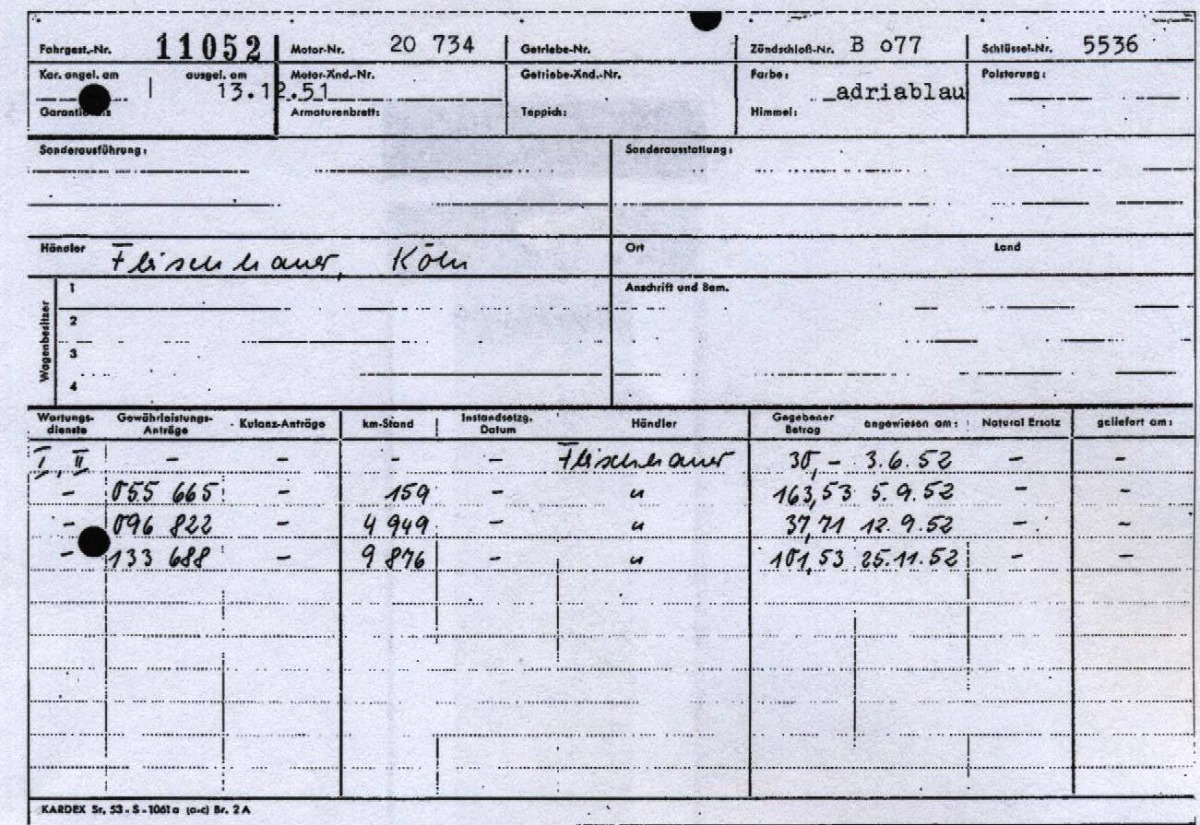 Fahrgest.-Nr. 11052 Motor-Nr. 20 734 Getriebe-Nr. Zündschloß-Nr. B o77 Schlüssel-Nr. 5536
Kar. angel. am ausgel. am Motor-Änd.-Nr. Getriebe-Änd.-Nr. Farbe: Polsterung:
13.12.51 adriablau
Armaturenbrett: Teppich: Himmel:
Sonderausführung: Sonderausstattung:
Händler Fleischhauer, Köln Ort Land
Wagenbesitzer
1 Anschrift und Bem.
2
3
4
Wartungs-dienste Gewährleistungs-Anträge Kulanz-Anträge km-Stand Instandsetzg. Datum Händler Gegebener Betrag angewiesen am: Natural Ersatz geliefert am:
I, II - - - - Fleischhauer 30,- 3.6.52 - -
- 055 665 - 159 - " 163,53 5.9.52 - -
- 096 822 - 4 949 - " 37,71 12.9.52 - -
- 133 688 - 9 876 - " 101,53 25.11.52 - -
KARDEX Sr. 53-S-1061a (a-c) Br. 2A